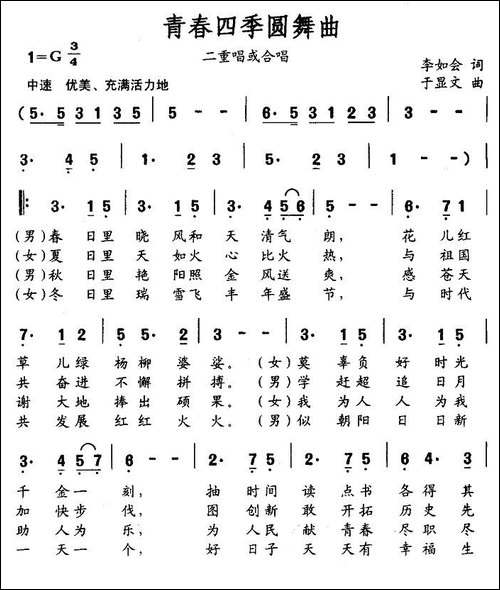 青春四季圆舞曲
二重唱或合唱
1=G 3/4
李如会 词
于显文 曲
中速 优美、充满活力地
( 5· 5 3 1 3 5 | 5 - - | 6· 5 3 1 2 3 | 3 - - |
3· 4 5 | 1· 2 3 | 5· 5 2 3 | 1 - - )
‖: 3· 1 5 | 3· 1 5 | 3· 4 5 6 | 5 - - | 6· 7 1
(男)春 日里 晓 风和 天 清气 朗, 花 儿红
(女)夏 日里 天 如火 心 比火 热, 与 祖国
(男)秋 日里 艳 阳照 金 风送 爽, 感 苍天
(女)冬 日里 瑞 雪飞 丰 年盛 节, 与 时代
7· 1 2 | 5 5· 2 | 3 - - | 3· 1 5 | 3· 1 5
草 儿绿 杨柳 婆 娑。 (女)莫 辜负 好 时光
共 奋进 不懈 拼 搏。 (男)学 赶超 追 日月
谢 大地 捧出 硕 果。 (女)我 为人 人 为我
共 发展 红红 火 火。 (男)似 朝阳 日 日新
3· 4 5 7 | 6 - - | 2· 7 5 | 2· 7 5 | 6 4· 3
千 金一 刻, 抽 时间 读 点书 各得 其
加 快步 伐, 图 创新 敢 开拓 历史 先
助 人为 乐, 为 人民 献 青春 尽职 尽
一 天一 个, 好 日子 天 天有 幸福 生